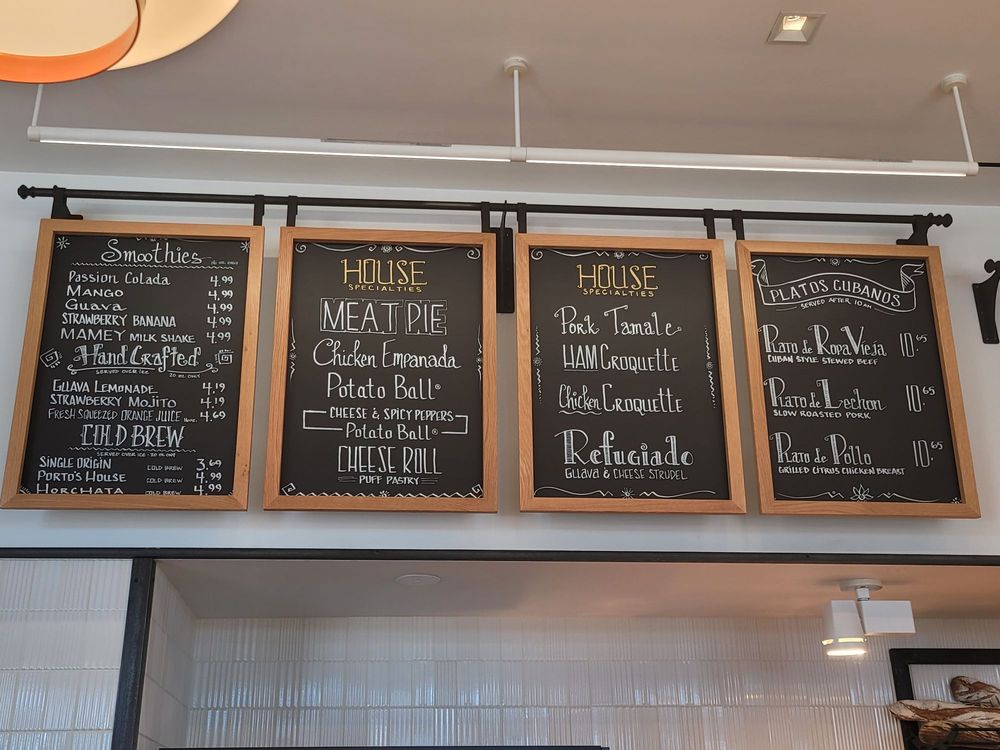 Smoothies
Passion Colada 4.99
Mango 4.99
Guava 4.99
Strawberry Banana 4.99
Mamey Milk Shake 4.99
Hand Crafted
Served over ice
20 oz. only
Guava Lemonade 4.19
Strawberry Mojito 4.19
Fresh Squeezed Orange Juice 4.69
Cold Brew
Served over ice - 20 oz. only
Single Origin Cold Brew 3.69
Porto's House Cold Brew 4.99
Horchata Cold Brew 4.99
HOUSE
SPECIALTIES
MEAT PIE
Chicken Empanada
Potato Ball®
CHEESE & SPICY PEPPERS
Potato Ball®
CHEESE ROLL
PUFF PASTRY
HOUSE
SPECIALTIES
Pork Tamale
HAM CROQUETTE
Chicken CROQUETTE
Refugiado
GUAVA & CHEESE STRUDEL
PLATOS CUBANOS
SERVED AFTER 10AM
Plato de Ropa Vieja 10.65
CUBAN STYLE STEWED BEEF
Plato de Lechon 10.65
SLOW ROASTED PORK
Plato de Pollo 10.65
GRILLED CITRUS CHICKEN BREAST